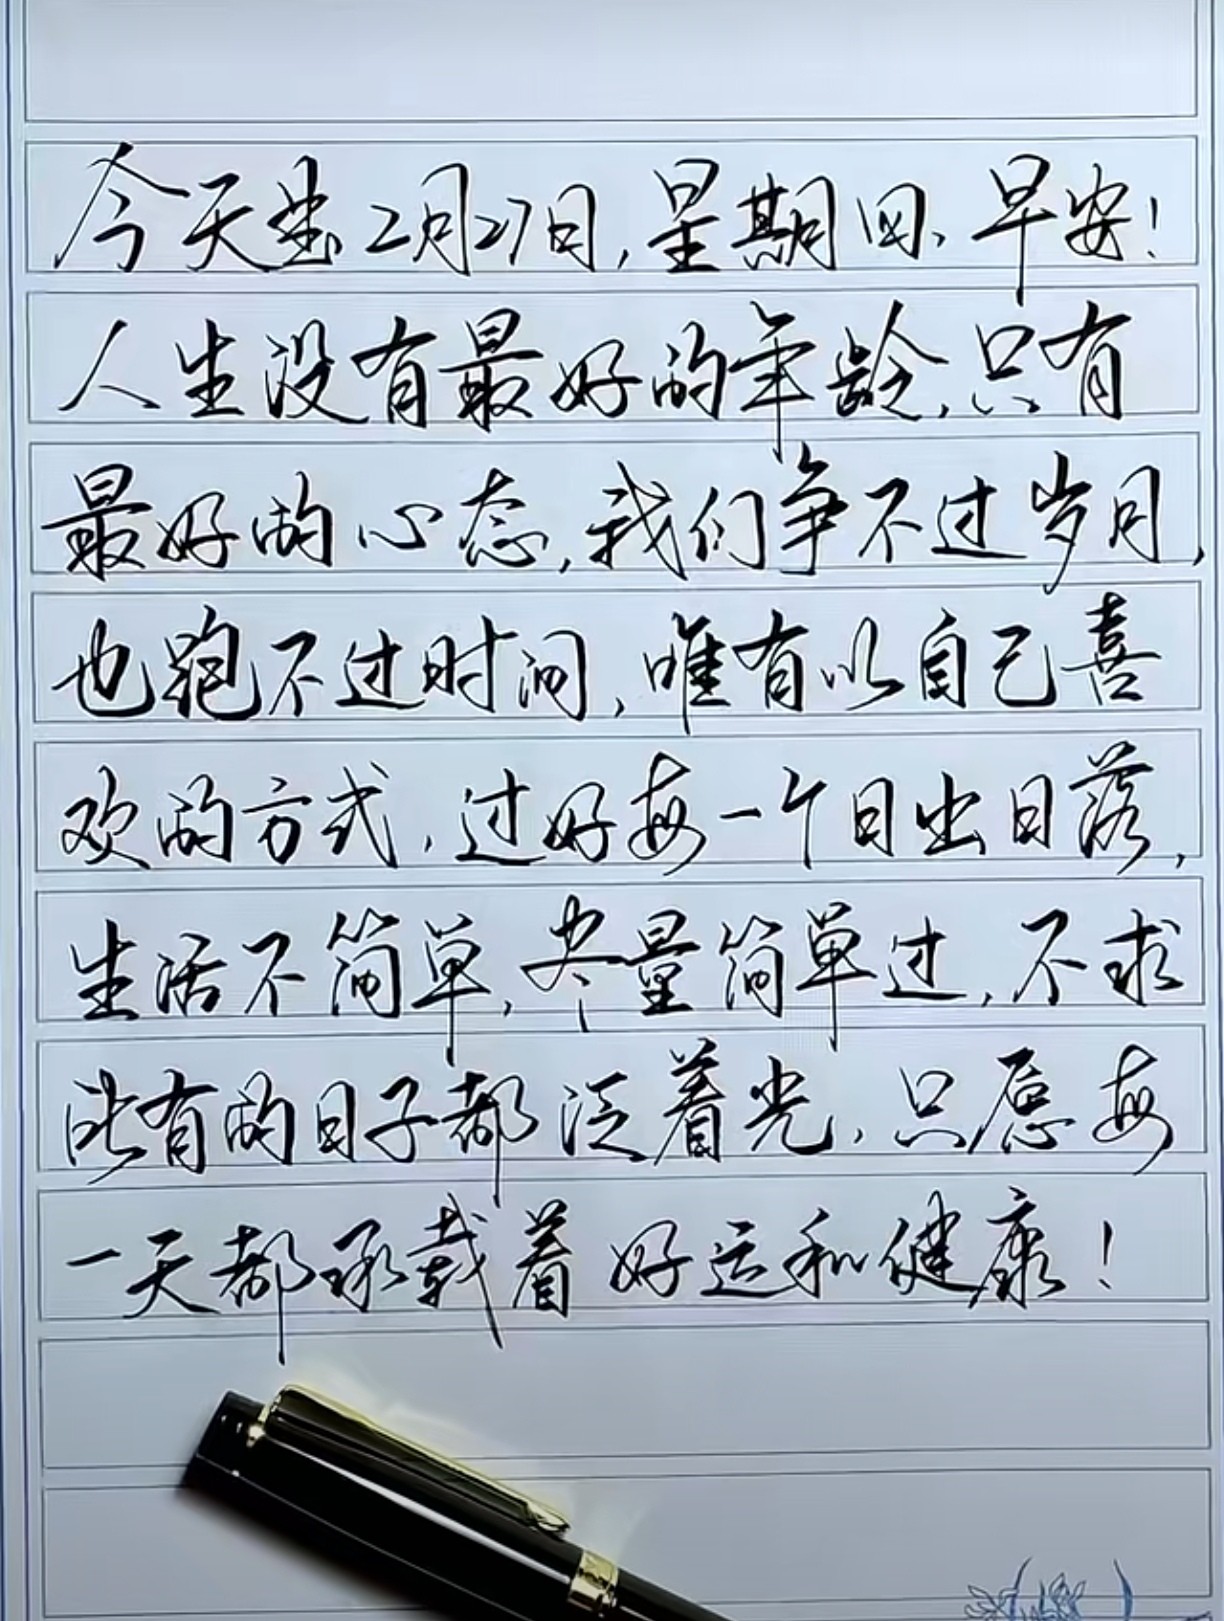 今天是2月27日,星期四、早安!
人生没有最好的年龄,只有
最好的心态,我们争不过岁月,
也跑不过时间,唯有以自己喜
欢的方式,过好每一个日出日落,
生活不简单,尽量简单过,不求
所有的日子都泛着光,只愿每
一天都承载着好运和健康!